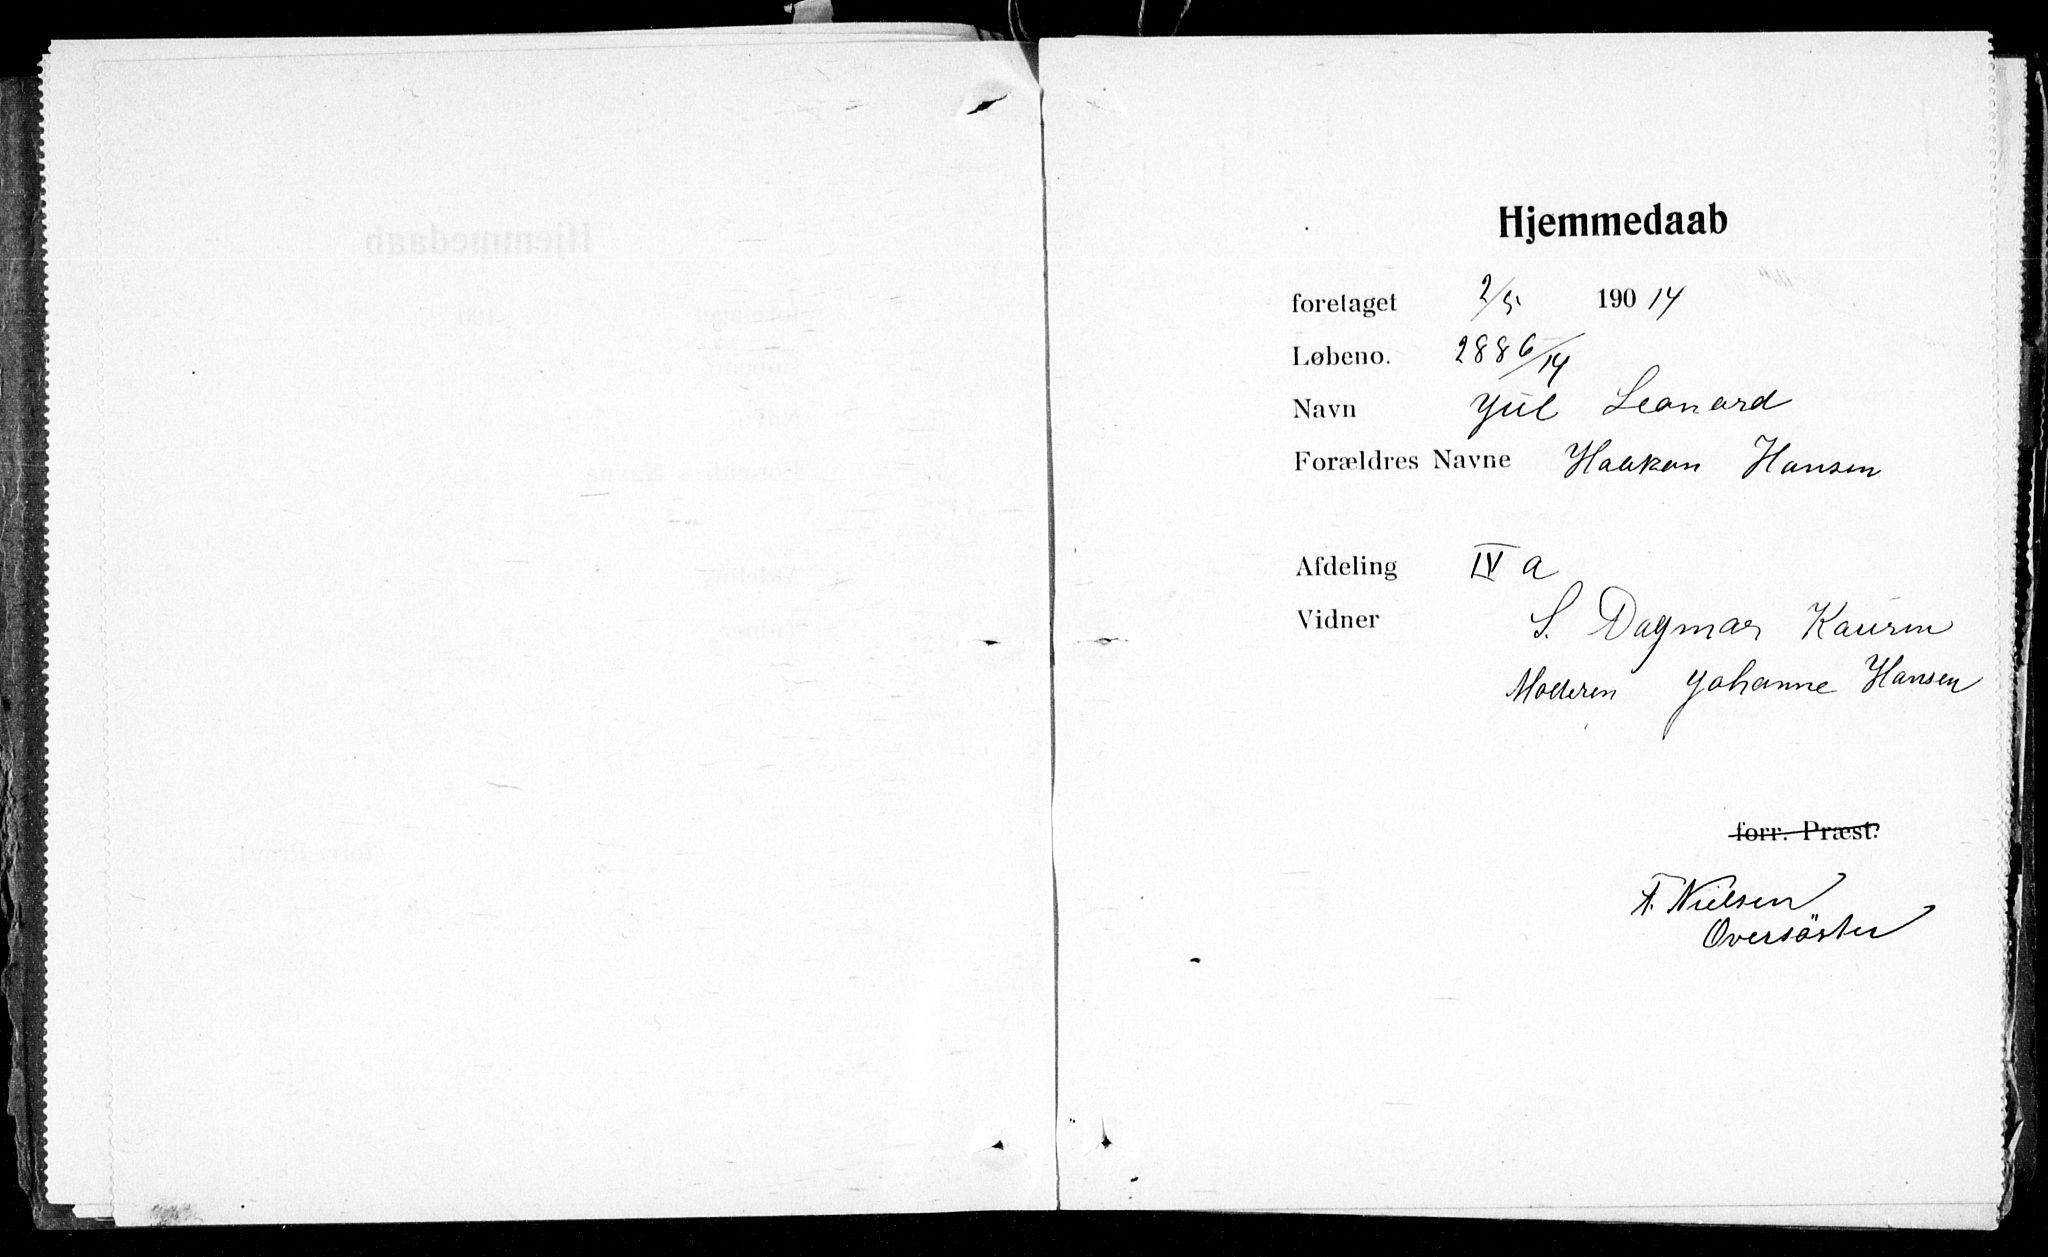 Hjemmedaab
foretaget 2/5 190 14
Løbeno. 2886/14
Navn Jul Leonard
Forældres Navne Haakon Hansen
Afdeling IV a
Vidner S. Dagmar Kaurin
Moderen Johanne Hansen
forr. Præst.
F. Nielsen
Oversöster